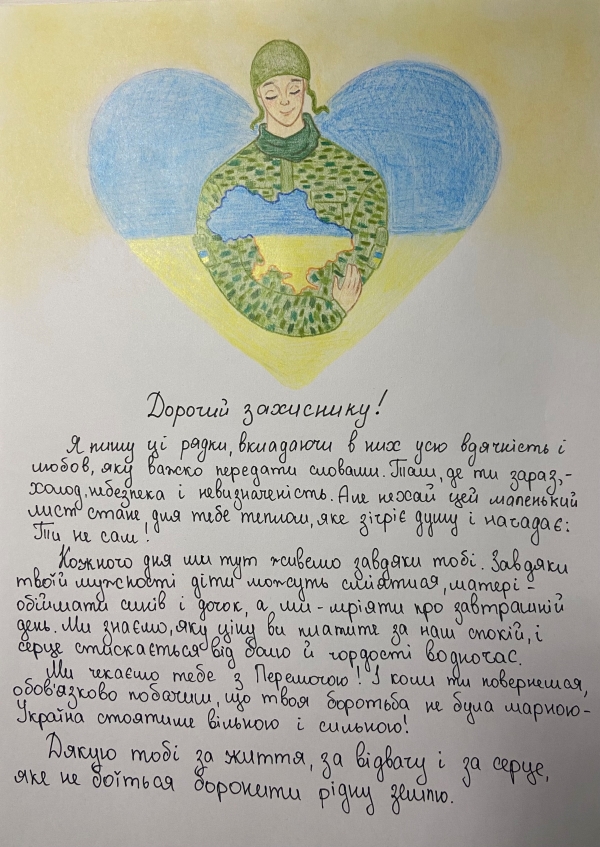 Дорогий захиснику!
Я пишу ці рядки, вкладаючи в них усю вдячність і
любов, яку важко передати словами. Там, де ти зараз, -
холод, небезпека і невизначеність. Але нехай цей маленький
лист стане для тебе теплом, яке зігріє душу і нагадає:
Ти не сам!
Кожного дня ми тут живемо завдяки тобі. Завдяки
твоїй мужності діти можуть сміятися, матері -
обіймати синів і дочок, а ми - мріяти про завтрашній
день. Ми знаємо, яку ціну ви платите за наш спокій, і
серце стискається від болю й гордості водночас.
Ми чекаємо тебе з Перемогою! І коли ти повернешся,
обов'язково побачиш, що твоя боротьба не була марною -
Україна стоятиме вільною і сильною!
Дякую тобі за життя, за відвагу і за серце,
яке не боїться боронити рідну землю.